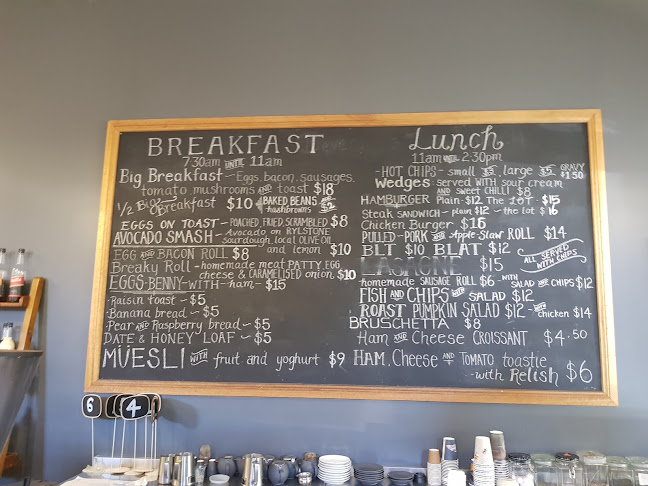 BREAKFAST
7:30am UNTIL 11am
Big Breakfast - Eggs, bacon, sausages,
tomato, mushrooms AND toast $18
1/2 Big Breakfast $10
BAKED BEANS
hashbrowns $2
EGGS ON TOAST - POACHED, FRIED, SCRAMBLED $8
AVOCADO SMASH - Avocado on RYLSTONE
sourdough, local OLIVE OIL
and lemon $10
EGG AND BACON ROLL $8
Breaky Roll - homemade meat PATTY, EGG
cheese & CARAMELISED onion $10
EGGS BENNY - WITH - ham - $15
Raisin toast - $5
Banana bread - $5
Pear AND Raspberry bread - $5
DATE & HONEY LOAF - $5
MÜESLI WITH fruit and yoghurt $9
Lunch
11am UNTIL 2:30pm
-HOT CHIPS - small $3, large $5 GRAVY $1.50
Wedges served WITH sour cream
AND SWEET CHILLI $8
HAMBURGER Plain - $12, The LOT - $15
Steak SANDWICH - plain $12 - the lot $16
Chicken Burger $16
PULLED - PORK AND Apple Slaw ROLL $14
BLT $10 BLAT $12
ALL SERVED
WITH CHIPS
$15
homemade SAUSAGE ROLL $6 - WITH SALAD AND CHIPS $12
FISH AND CHIPS WITH SALAD $12
ROAST PUMPKIN SALAD $12 - WITH chicken $14
BRUSCHETTA $8
Ham AND Cheese CROISSANT $4.50
HAM, Cheese AND TOMATO toastie
-with Relish $6
6
4